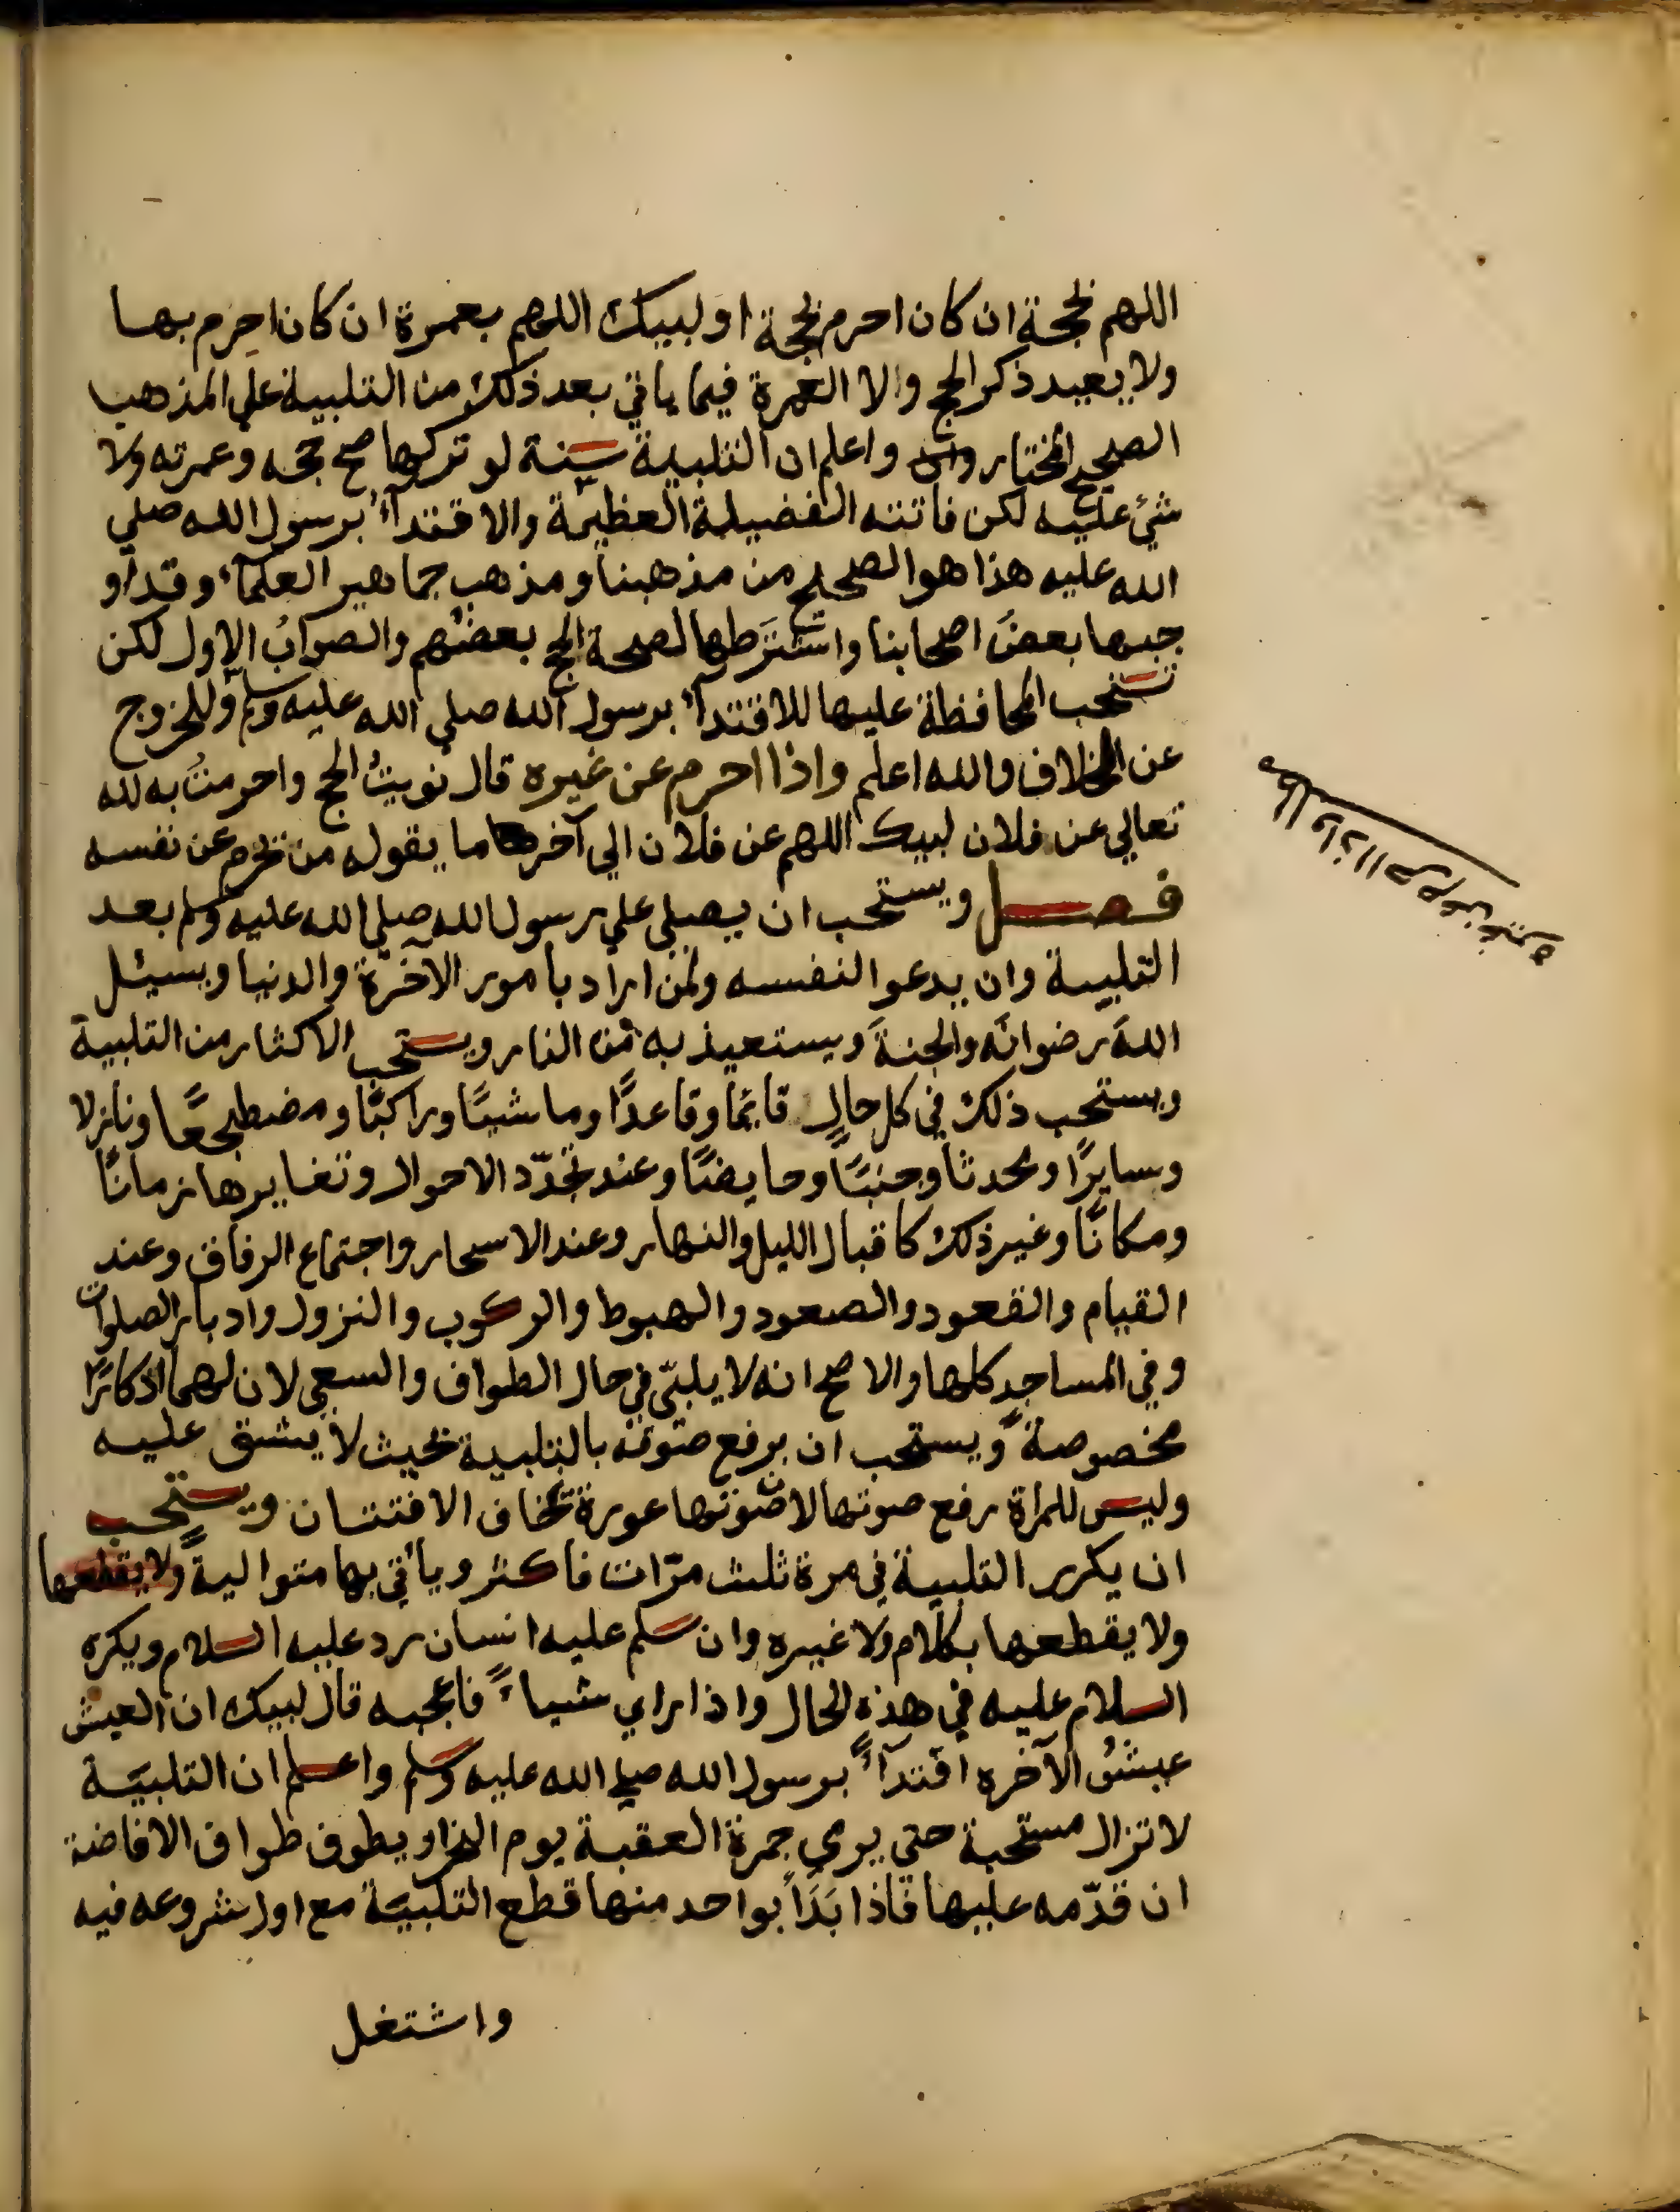 اللهم بحجة ان كان احرم بحجة او لبيك اللهم بعمرة ان كان احرم بها
ولا يعيد ذكر الحج والا العمرة فيما ياتي بعد ذلك من التلبية علي المذهب
الصحيح المختار واعلم ان التلبية سنة لو تركها صح حجه وعمرته ولا
شئ عليه لكن فاتته الفضيلة العظيمة والاقتدآء برسول الله صلي
الله عليه هذا هو الصحيح من مذهبنا ومذهب جماهير العلمآء وقد او
جبها بعضُ اصحابنا واشترَطها لصحة الحج بعضهم والصوابُ الاول لكن
تستحب المحافظة عليها للاقتدآء برسول الله صلي الله عليه وسلم وللخروج
عن الخلاف والله اعلم واذا احرم عن غيره قال نويتُ الحج واحرمتُ به لله
تعالي عن فلان لبيك اللهم عن فلان الي آخر ما يقوله من يحرم عن نفسه
فصل ويستحب ان يصلي علي رسول الله صلي الله عليه وسلم بعد
التلبية وان يدعو لنفسه ولمن اراد بامور الآخرة والدنيا ويسئل
اللهَ رضوانَه والجنةَ ويستعيذ به من النار ويستحب الاكثار من التلبية
ويستحب ذلك في كل حالٍ قايمًا وقاعدًا وماشيًا وراكبًا ومضطجعًا ونازلا
وسايرًا ومحدثًا وجنبًا وحايضًا وعند تجدّد الاحوال وتغايرها زمانًا
ومكانًا وغير ذلك كاقبال الليل والنهار وعند الاسحار واجتماع الرفاق وعند
القيام والقعود والصعود والهبوط والركوب والنزول وادبار الصلوات
وفي المساجد كلها والاصح انه لا يلبّي في حال الطواف والسعي لان لهما اذكارًا
مخصوصةً ويستحب ان يرفع صوته بالتلبية بحيث لا يشق عليه
وليس للمراة رفع صوتها لان صوتها عورة تخاف الافتتان ويستحب
ان يكرر التلبية في مرة ثلث مرّات فاكثر ويأتي بها متواليةً ولا يقطعها
ولا يقطعها بكلام ولا غيره وان سلم عليه انسان رد عليه السلام ويكره
السلام عليه في هذه الحال واذا راي شياءً فاعجبه قال لبيك ان العيش
عيشُ الآخره اقتدآءً برسول الله صلي الله عليه وسلم واعلم ان التلبيّة
لا تزال مستحبة حتي يرمي جمرة العقبة يوم النحر او يطوف طواف الافاضة
ان قدّمه عليها فاذا بَدَأ بواحد منها قطع التلبيّة مع اول شروعه فيه
واشتغل
واذا احرم عن غيره